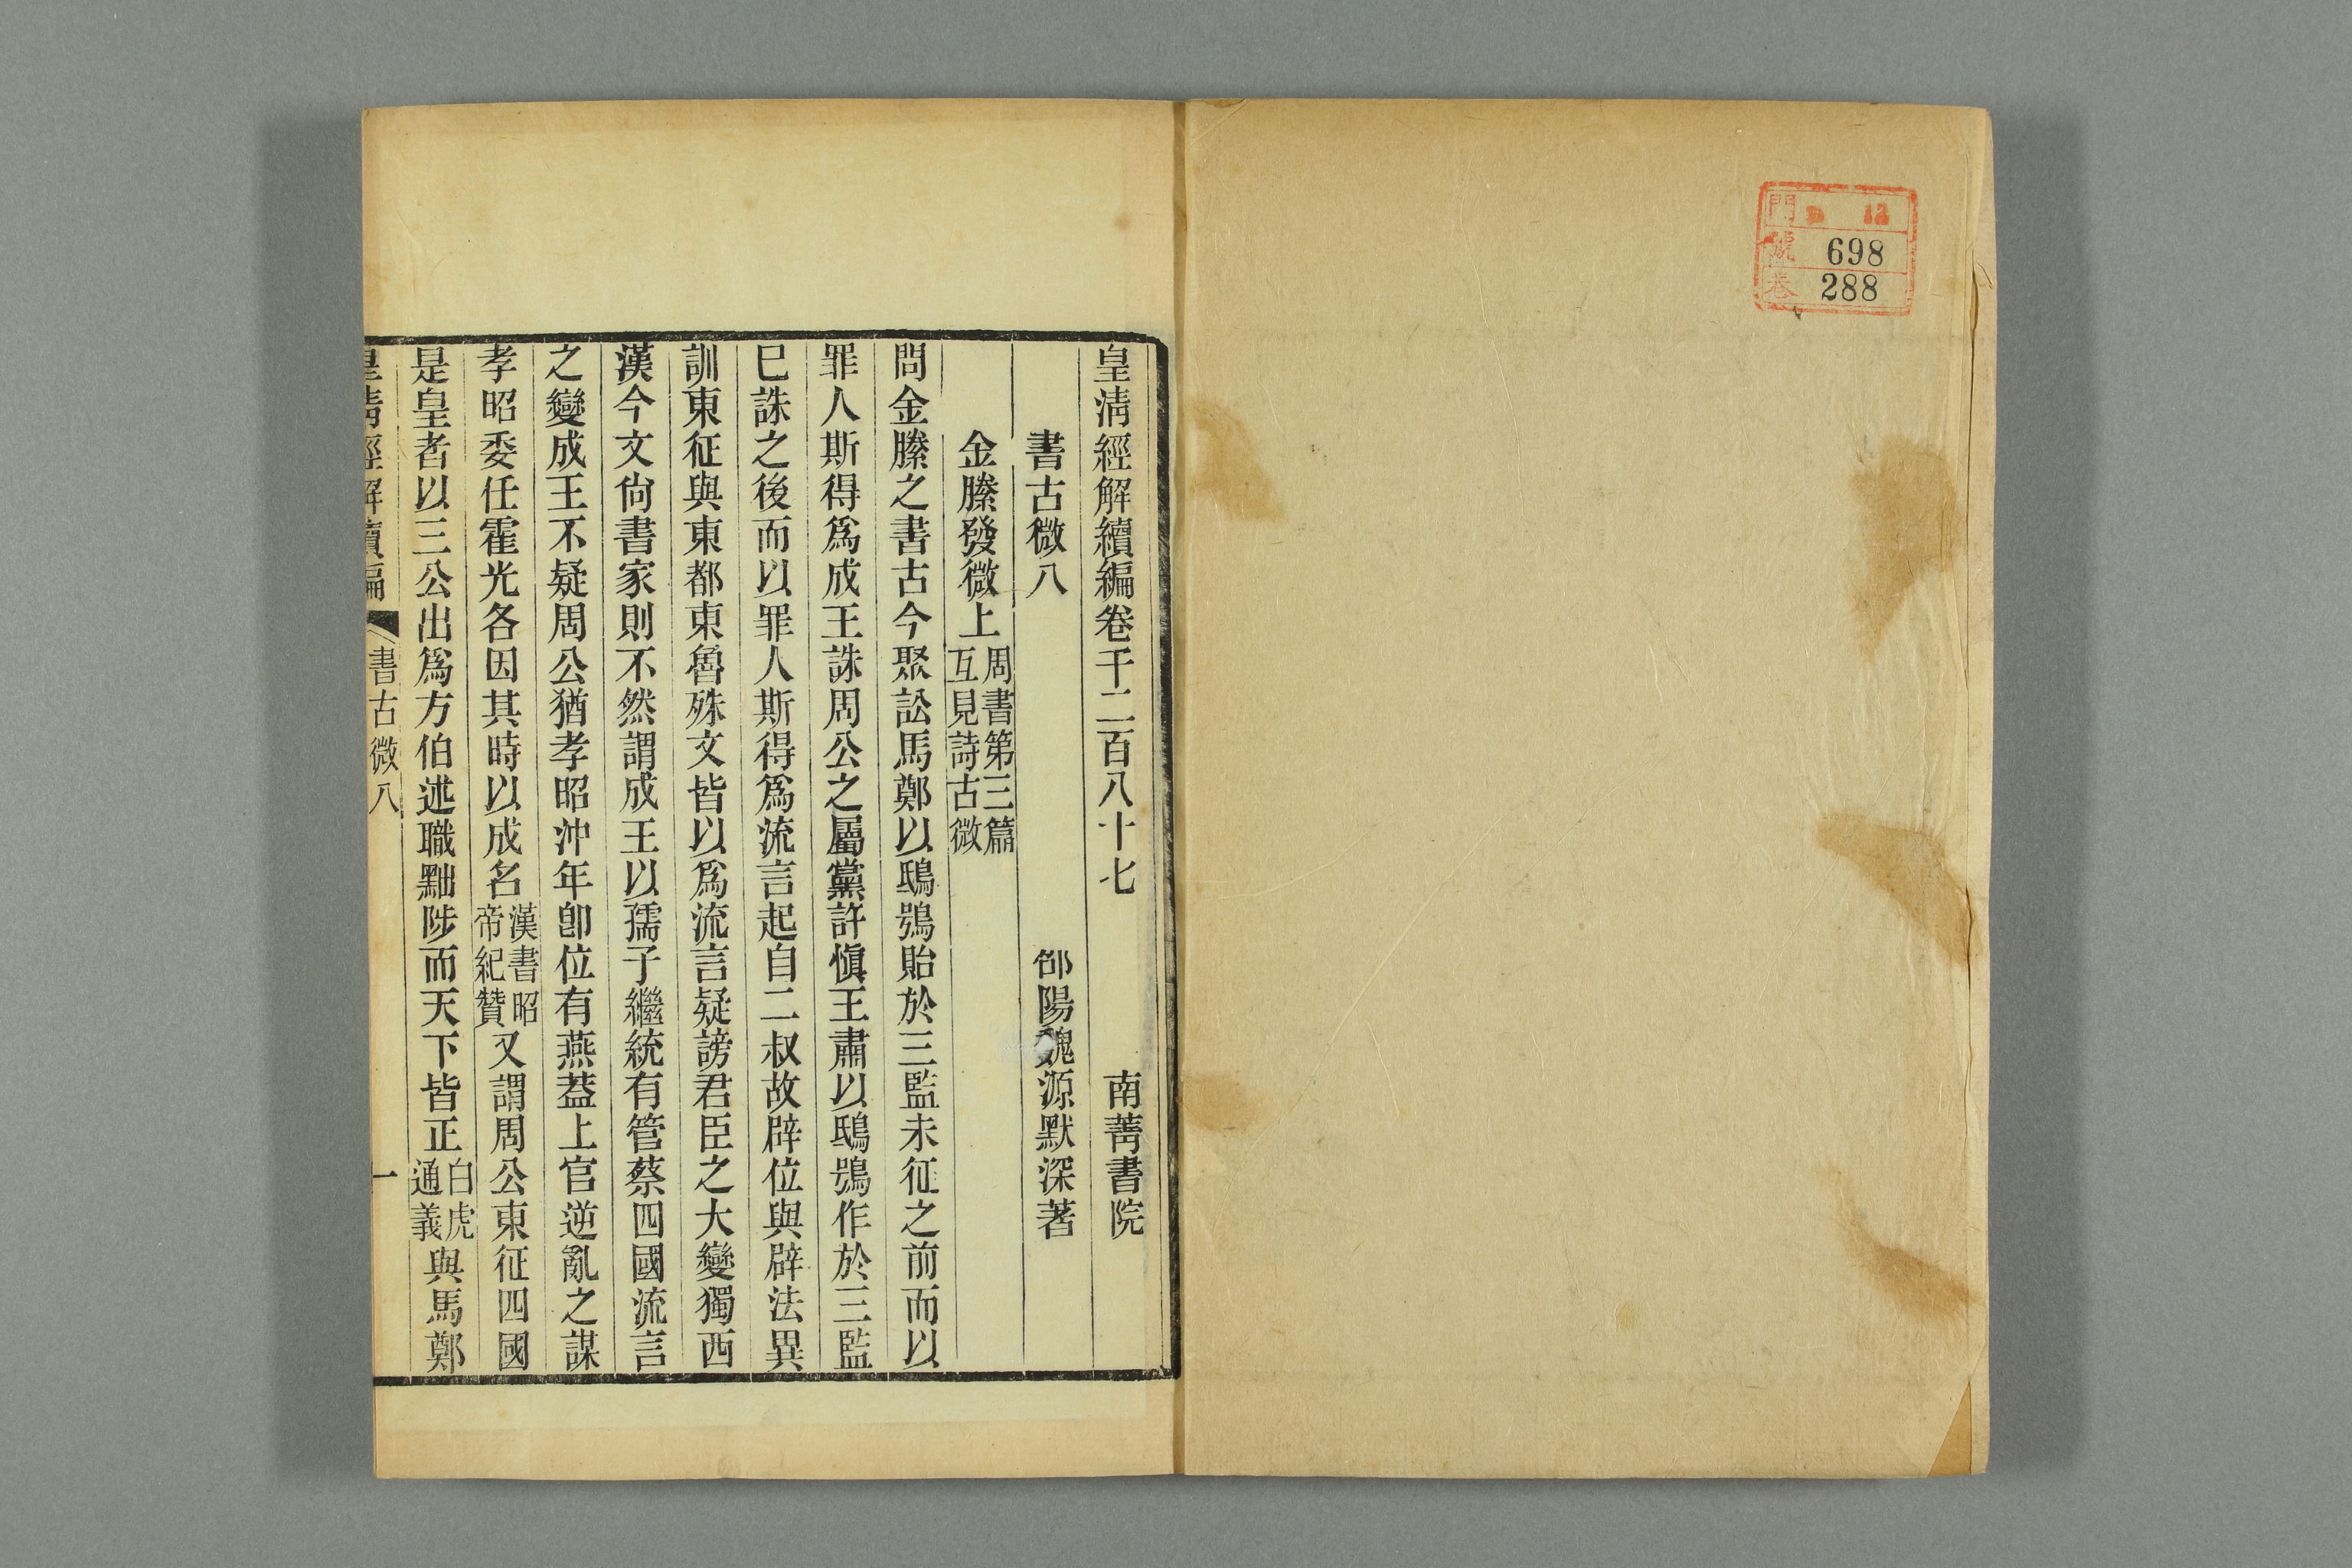 門 12
號 698
卷 288
皇清經解續編卷千二百八十七 南菁書院
書古微八 邵陽魏源默深著
金縢發微上 周書第三篇
互見詩古微
問金縢之書古今聚訟馬鄭以鴟鴞貽於三監未征之前而以
罪人斯得爲成王誅周公之屬黨許愼王肅以鴟鴞作於三監
已誅之後而以罪人斯得爲流言起自二叔故辟位與辟法異
訓東征與東都東魯殊文皆以爲流言疑謗君臣之大變獨西
漢今文尙書家則不然謂成王以孺子繼統有管蔡四國流言
之變成王不疑周公猶孝昭沖年卽位有燕蓋上官逆亂之謀
孝昭委任霍光各因其時以成名 漢書昭
帝紀贊 又謂周公東征四國
是皇者以三公出爲方伯述職黜陟而天下皆正 白虎
通義 與馬鄭
皇清經解續編 書古微八 一